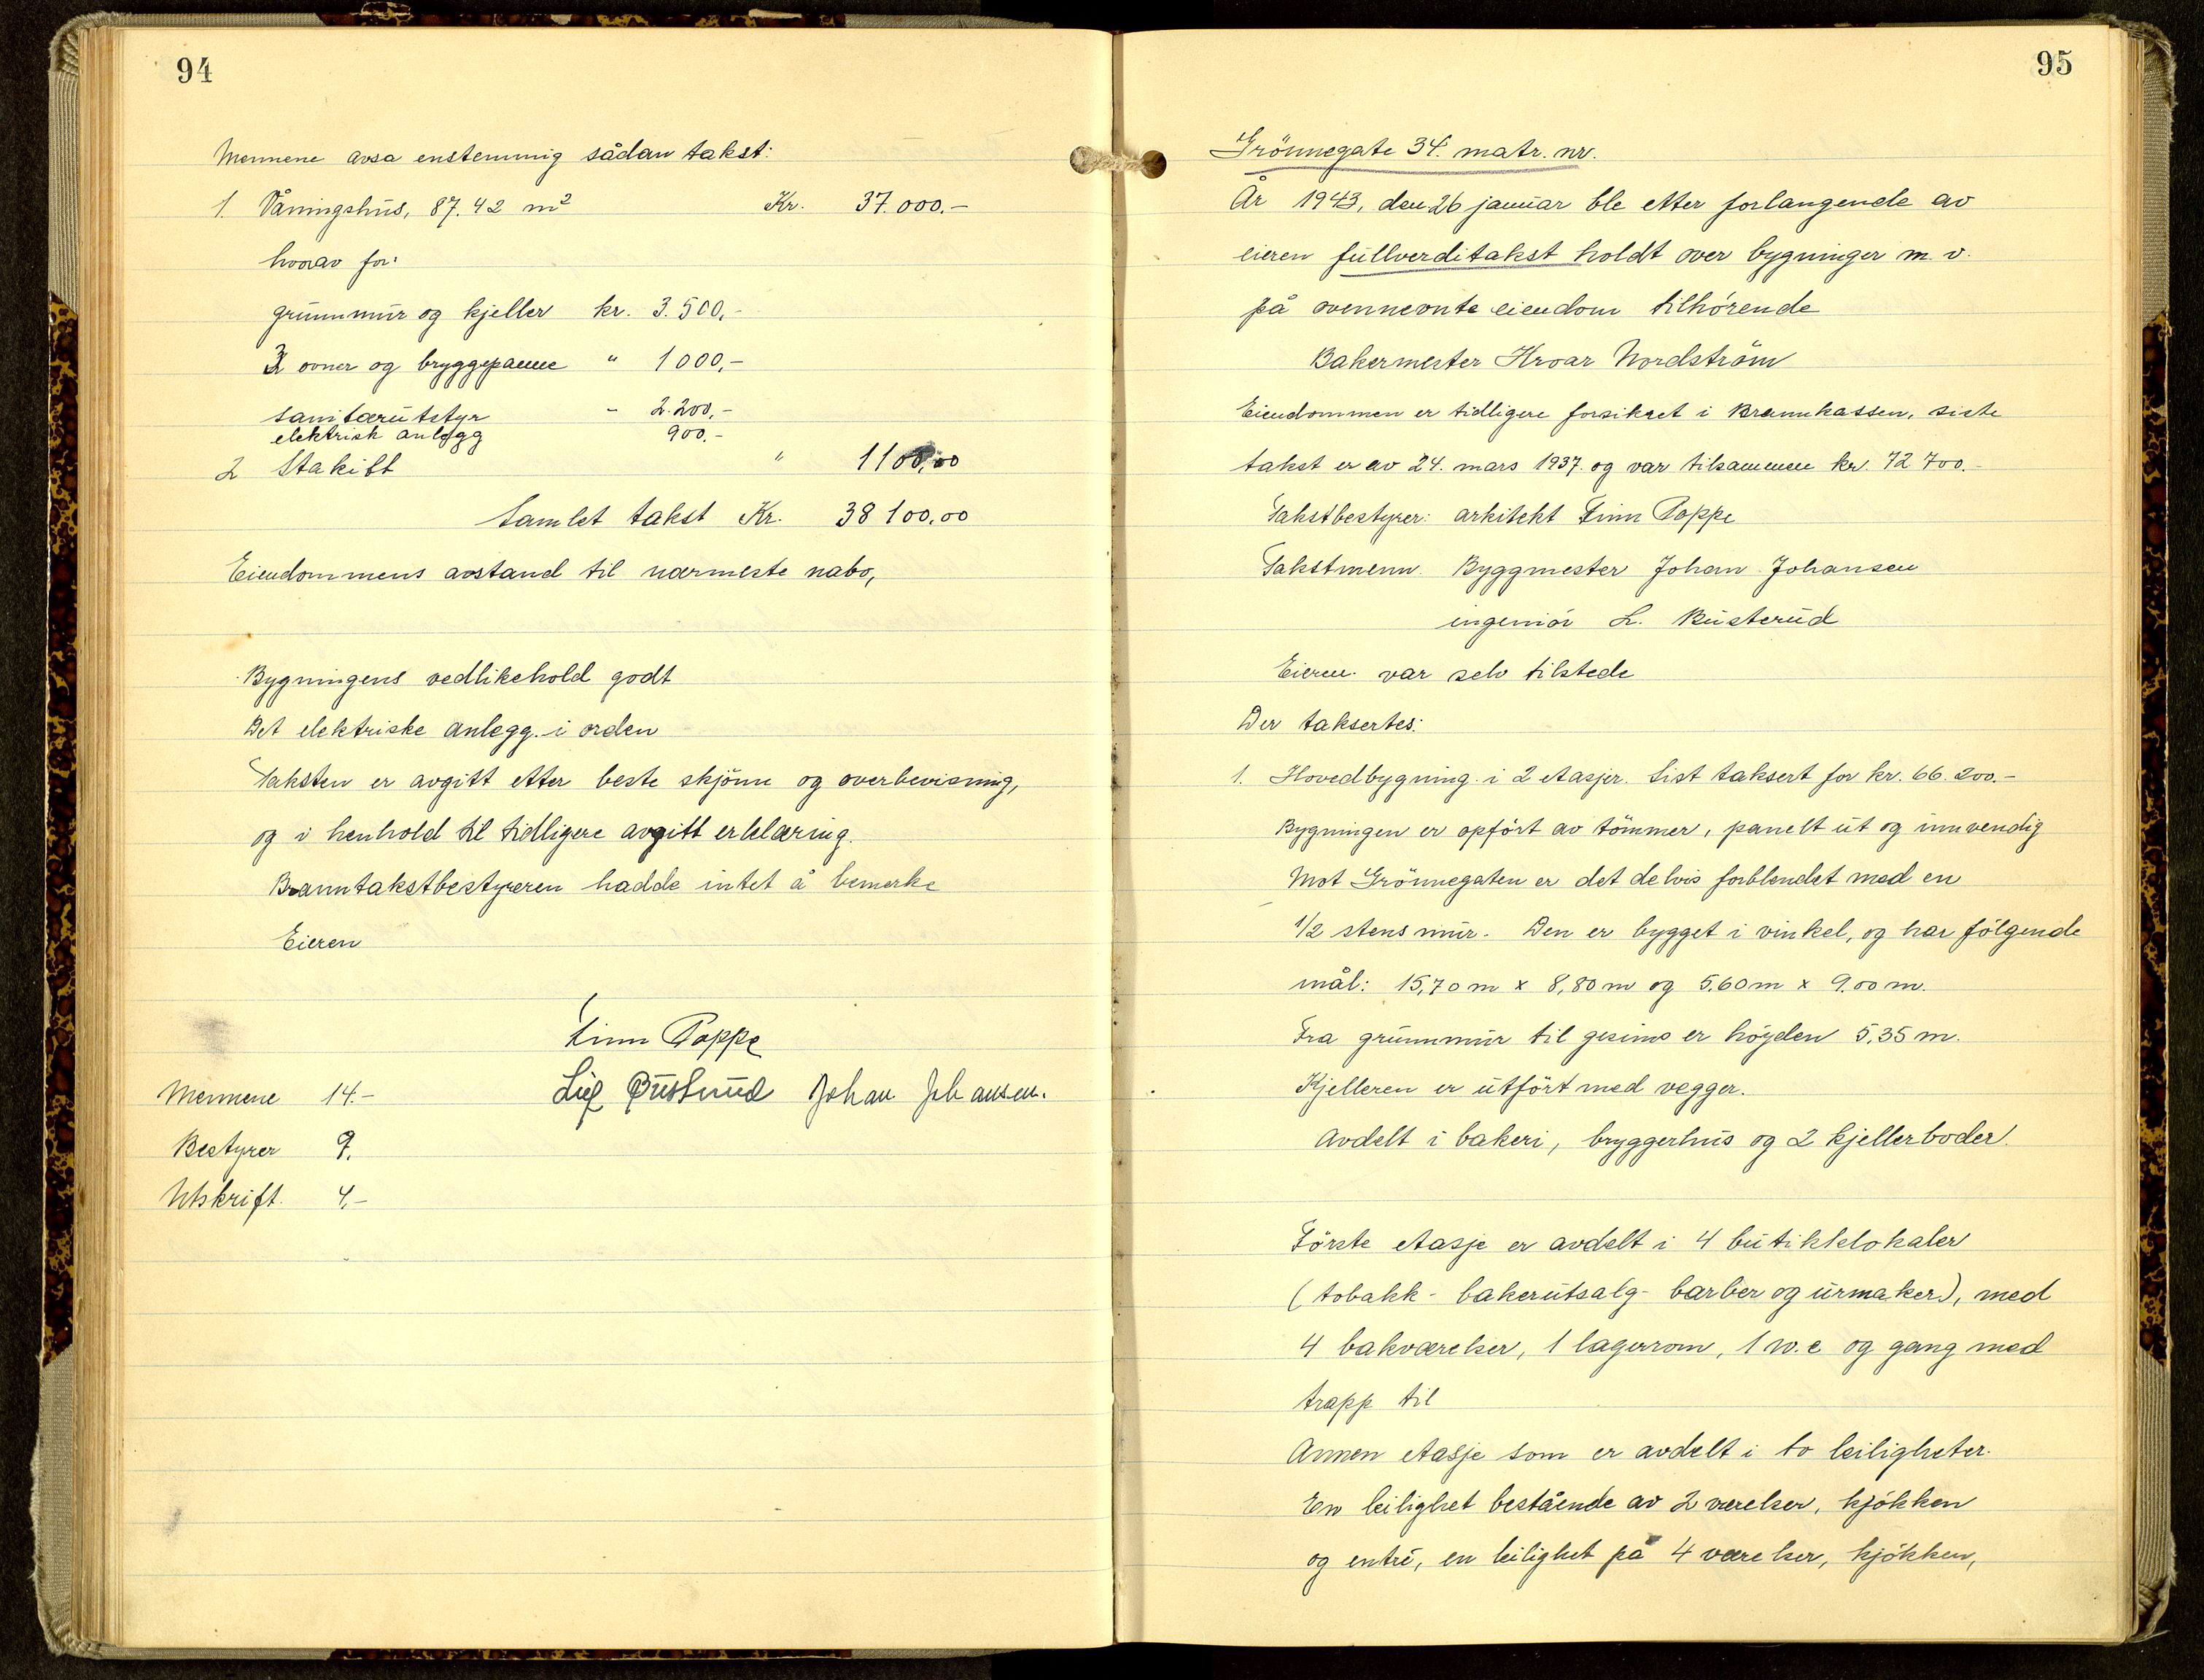 94
Mennene avsa enstemmig sådan takst:
1. Våningshus, 87.42 m² Kr. 37.000.-
hvorav for:
grunnmur og kjeller kr. 3.500,-
3 ovner og bryggepanne " 1000,-
sanitærutstyr - 2.200,-
elektrisk anlegg 900.-
2 Stakitt " 1100,00
Samlet takst Kr. 38100.00
Eiendommens avstand til nærmeste nabo,
Bygningens vedlikehold godt
Det elektriske anlegg. i orden
Taksten er avgitt etter beste skjönn og overbevisning,
og i henhold til tidligere avgitt erklæring.
Branntakstbestyreren hadde intet å bemerke
Eieren
Finn Poppe
Leif Busterud Johan Johansen.
Mennene 14.-
Bestyrer 9.
Utskrift. 4.-
95
Grönnegate 34. matr. nr.
År 1943, den 26 januar ble etter forlangende av
eieren fullverditakst holdt over bygninger m. v.
på ovennevnte eiendom tilhörende
Bakermester Hroar Nordström
Eiendommen er tidligere forsikret i Brannkassen, siste
takst er av 24. mars 1937. og var tilsammen kr. 72 700.-
Takstbestyrer: arkitekt Finn Poppe
Takstmenn. Byggmester Johan Johansen
ingeniör L. Busterud
Eieren. var selv tilstede
Der taksertes:
1. Hovedbygning. i 2 etasjer. Sist taksert for kr. 66.200.-
Bygningen er opfört av tömmer, panelt ut og innvendig
Mot Grönnegaten er det delvis forblendet med en
1/2 stens mur. Den er bygget i vinkel, og har fölgende
mål: 15,70 m x 8,80 m og 5.60 m x 9.00 m.
Fra grunnmur til gesims er höyden 5.35 m.
Kjelleren er utfört med vegger.
Avdelt i bakeri, bryggerhus og 2 kjellerboder.
Förste etasje er avdelt i 4 butikklokaler
(tobakk - bakerutsalg - barber og urmaker), med
4 bakværelser, 1 lagerrom, 1 w.c og gang med
trapp til
Annen etasje som er avdelt i to leiligheter.
En leilighet bestående av 2 værelser, kjökken
og entré, en leilighet på 4 værelser, kjökken,